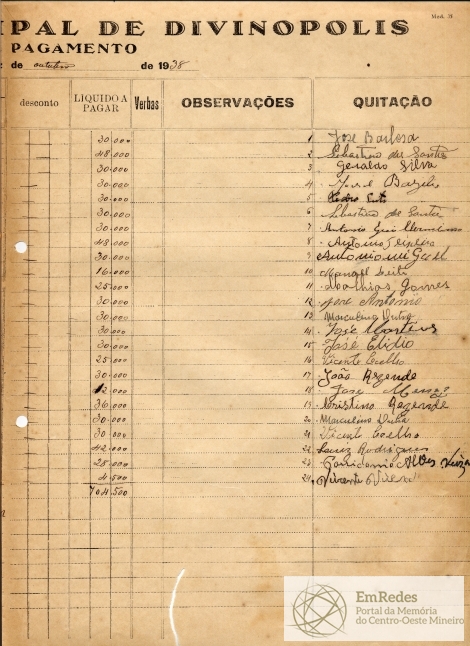 Mod. 28
PAL DE DIVINOPOLIS
PAGAMENTO
de outubro de 1938
desconto LIQUIDO A PAGAR Verbas OBSERVAÇÕES QUITAÇÃO
30.000 1 José Barbosa
48.000 2 Sebastião dos Santos
30.000 3 Geraldo Silva
30.000 4
30.000 5 Pedro
30.000 6 Sebastião de
30.000 7 Antonio
48.000 8 Antonio
30.000 9 Antonio
16.000 10 Manoel Leite
25.000 11 Mathias Gomes
30.000 12 José Antonio
30.000 13 Marculino Dutra
30.000 14 José Martins
30.000 15 José Elidio
25.000 16 Vicente Coelho
30.000 17 João Rezende
12.000 18 José
36.000 19 Cristino Rezende
30.000 20 Marculino Dutra
30.000 21 Vicente Coelho
42.000 22 Luiz Rodrigues
25.000 23 Alves
4.500 24 Vicente
704.500
EmRedes
Portal da Memória
do Centro-Oeste Mineiro